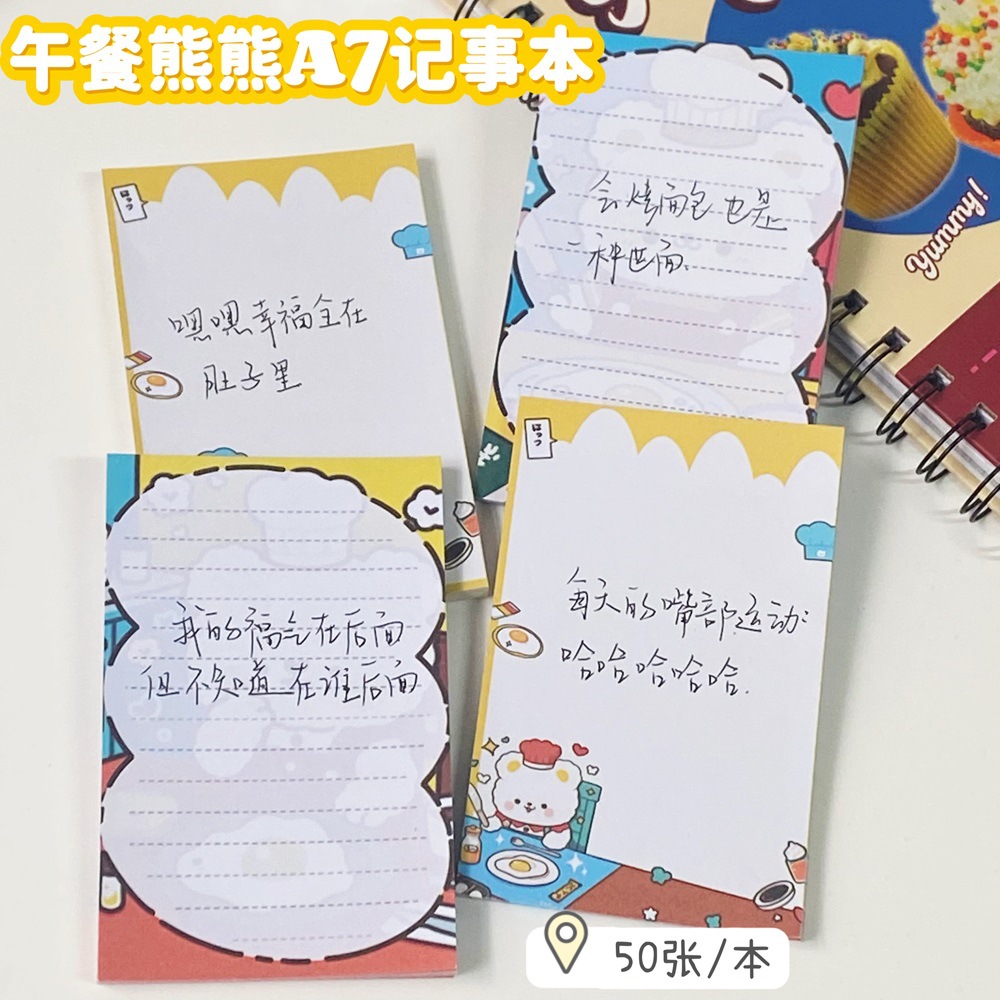 午餐熊熊A7记事本
Yummy!
会烤面包也是
一种世面.
ほっつ
嘿嘿幸福全在
肚子里
ほっつ
每天的嘴部运动
哈哈哈哈哈.
我的福气在后面
但不知道在谁后面
50张/本